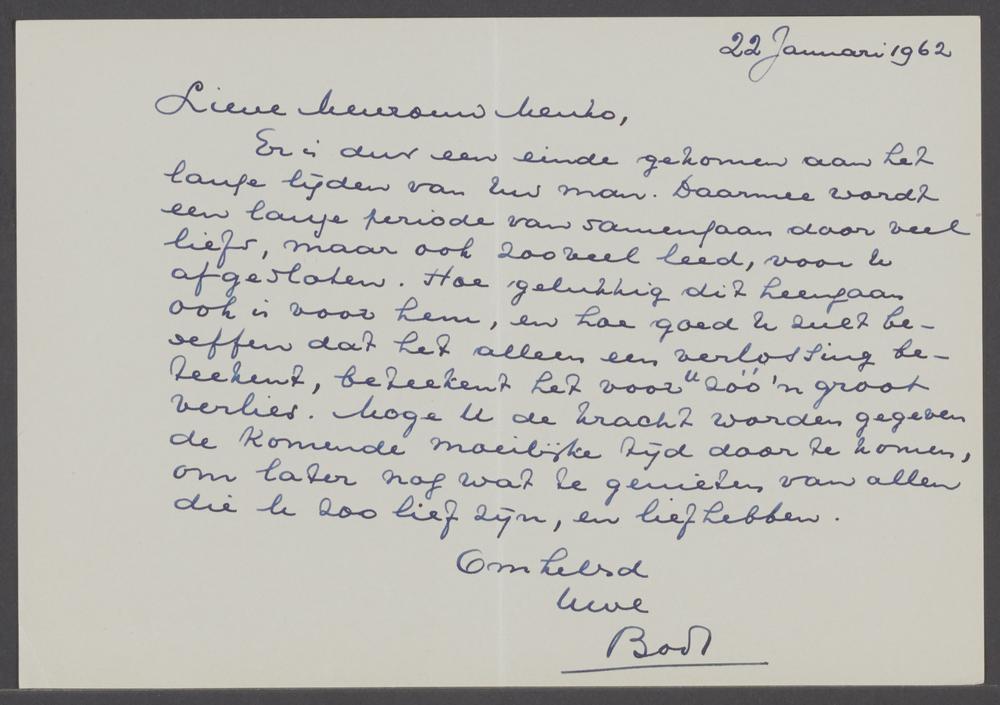 22 Januari 1962
Lieve Mevrouw Menko,
Er is dus een einde gekomen aan het
lange lijden van Uw man. Daarmee wordt
een lange periode van samengaan door veel
liefs, maar ook zooveel leed, voor U
afgesloten. Hoe gelukkig dit heengaan
ook is voor hem, en hoe goed U zult be-
seffen dat het alleen een verlossing be-
teekent, beteekent het voor U zóó'n groot
verlies. Moge U de kracht worden gegeven
de komende moeilijke tijd door te komen,
om later nog wat te genieten van allen
die U zoo lief zijn, en liefhebben.
Omhelsd
Uwe